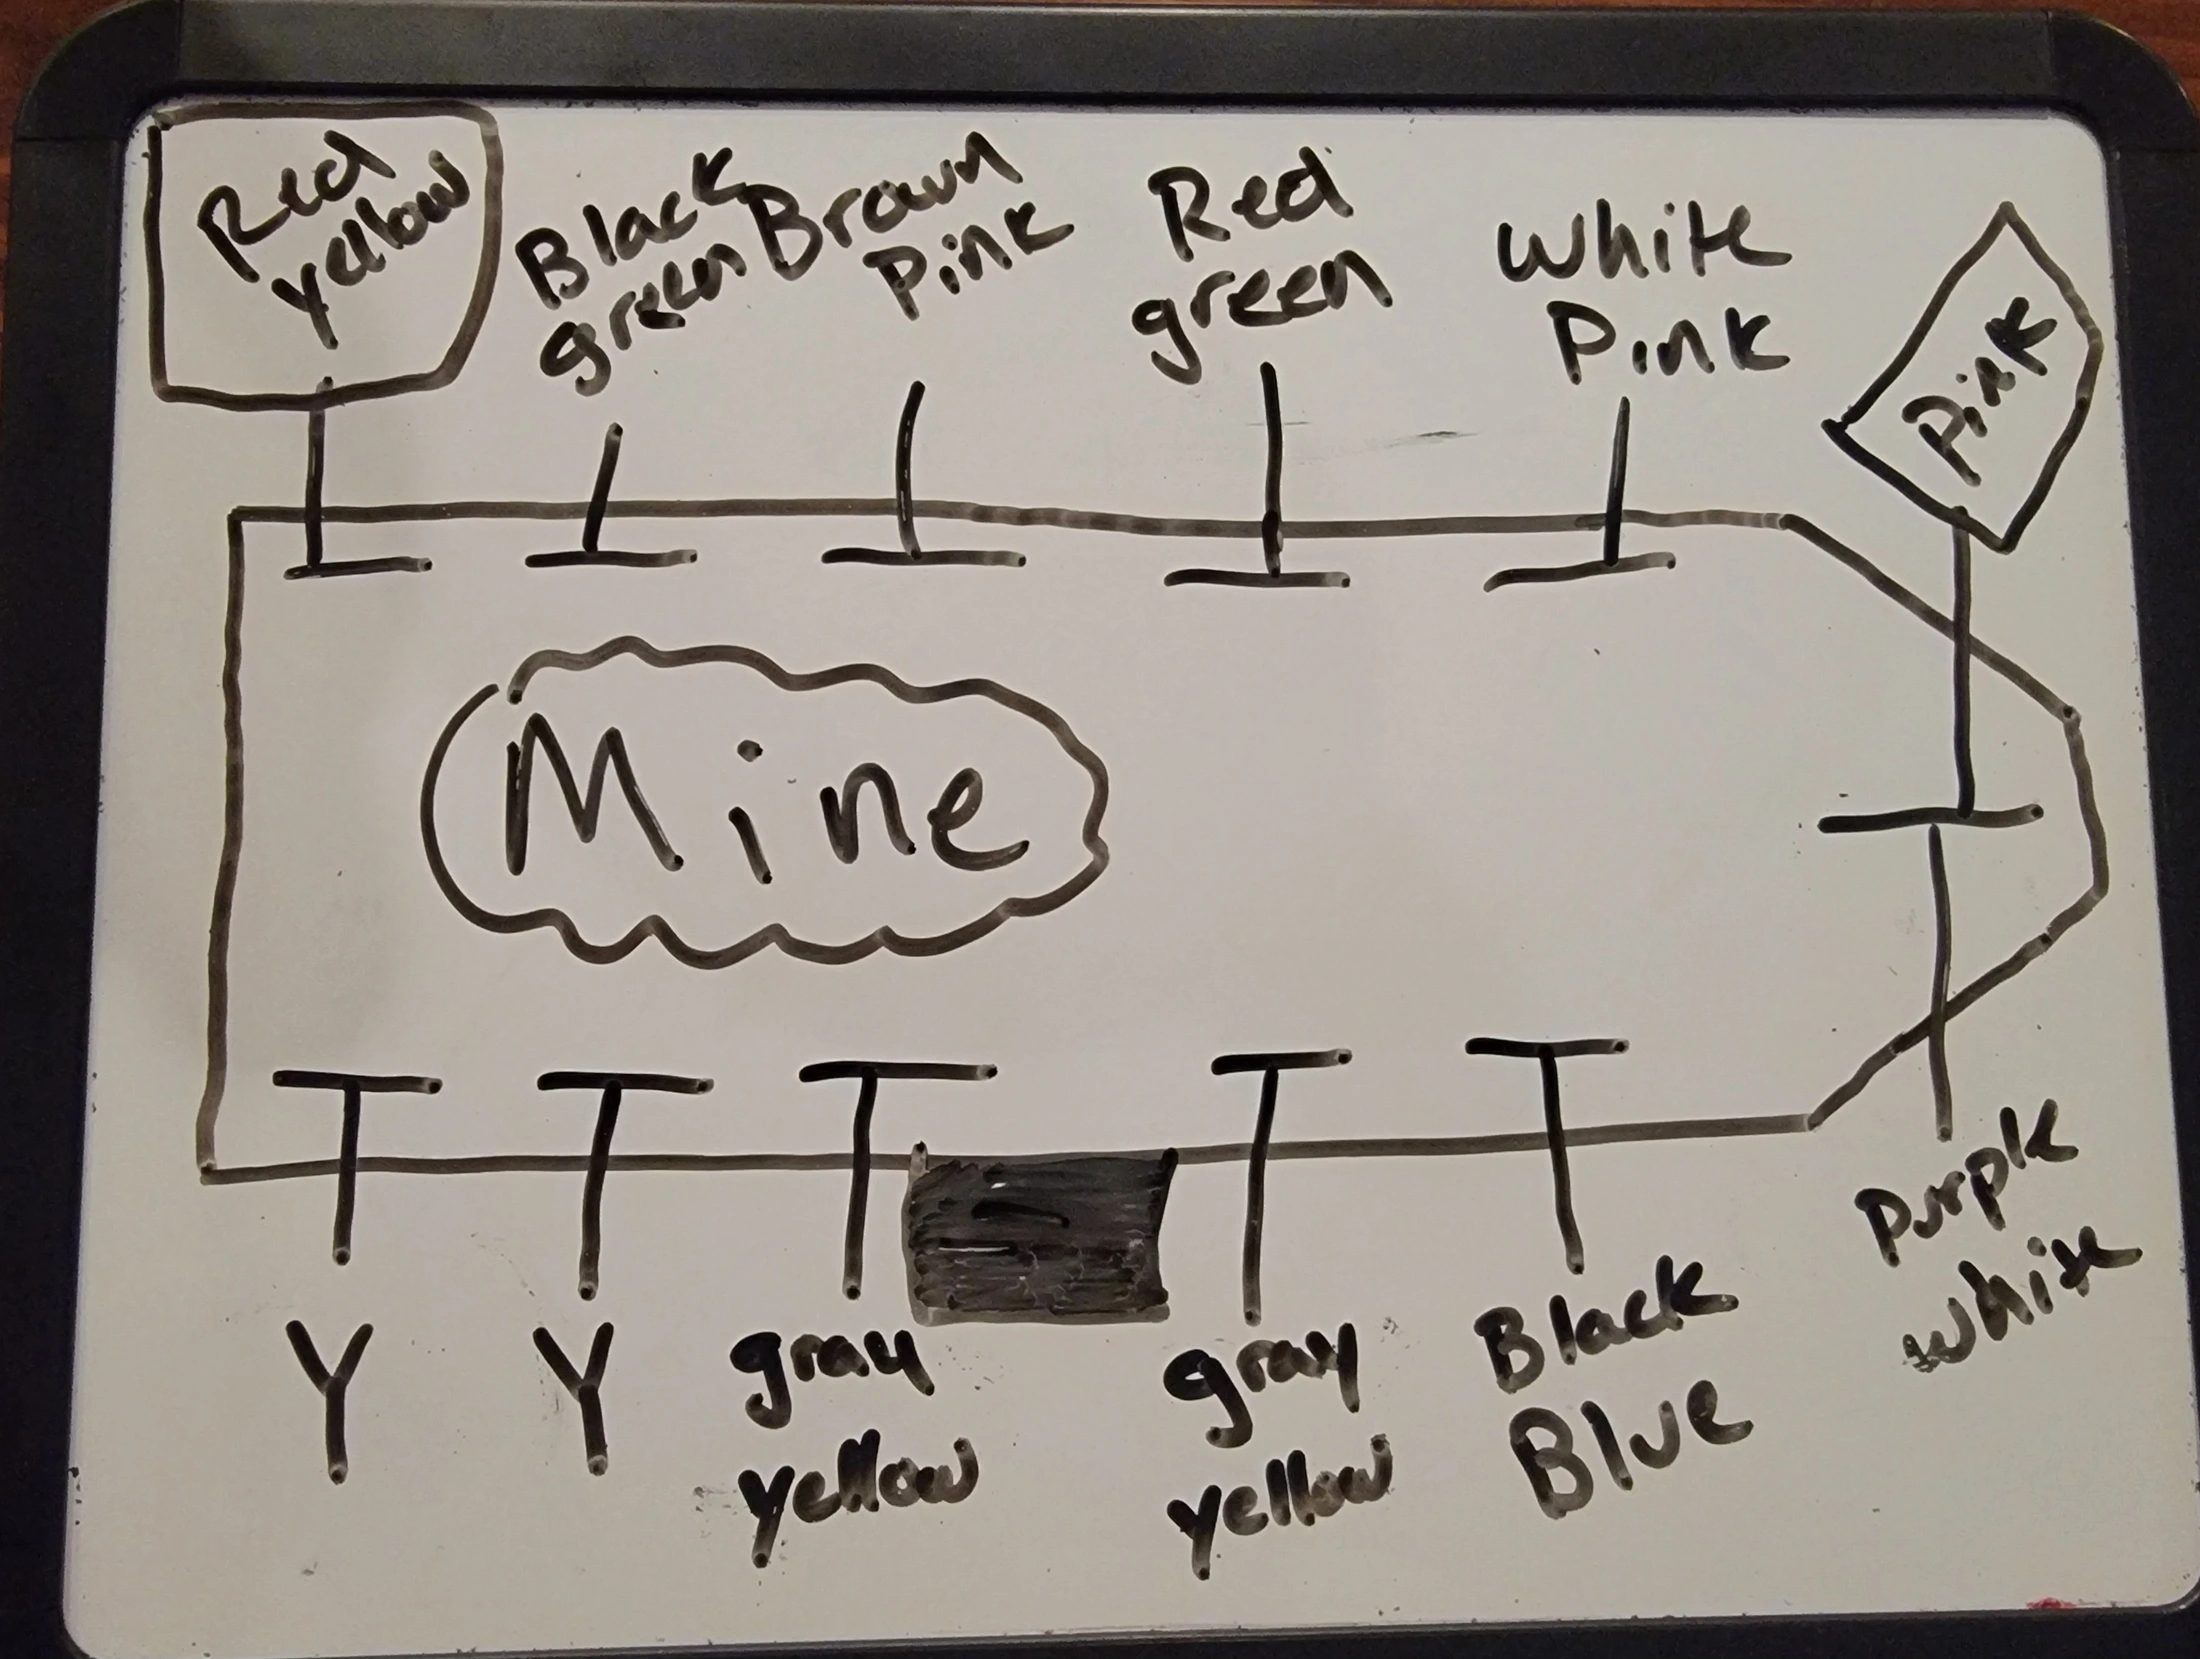 Red
yellow
Black
green
Brown
Pink
Red
green
White
Pink
Pink
Mine
Y
Y
gray
yellow
gray
yellow
Black
Blue
Purple
White